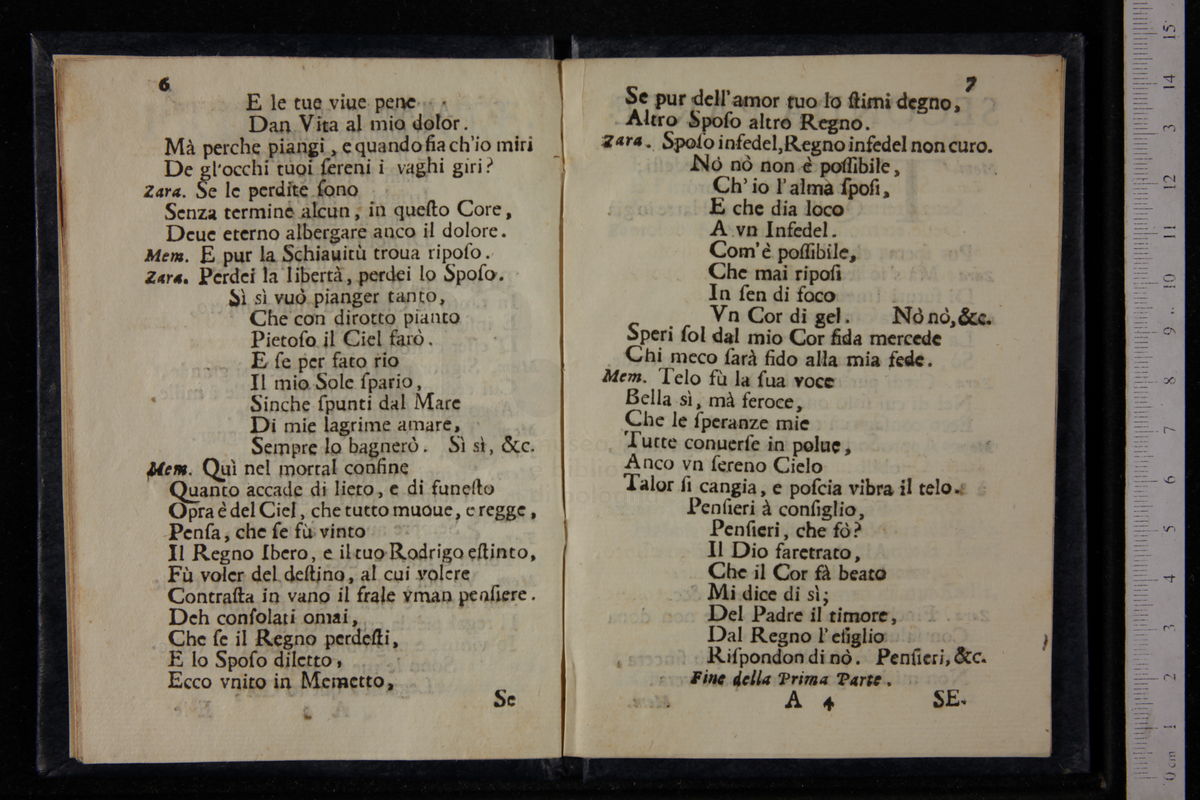 6
E le tue viue pene
Dan Vita al mio dolor.
Mà perche piangi, e quando fia ch'io miri
De gl'occhi tuoi ſereni i vaghi giri?
Zara. Se le perdite ſono
Senza termine alcun, in queſto Core,
Deue eterno albergare anco il dolore.
Mem. E pur la Schiauitù troua ripoſo.
Zara. Perdei la libertà, perdei lo Spoſo.
Sì sì vuò pianger tanto,
Che con dirotto pianto
Pietoſo il Ciel farò.
E ſe per fato rio
Il mio Sole ſpario,
Sinche ſpunti dal Mare
Di mie lagrime amare,
Sempre lo bagnerò. Sì sì, &c.
Mem. Quì nel mortal confine
Quanto accade di lieto, e di funeſto
Opra è del Ciel, che tutto muoue, e regge,
Penſa, che ſe fù vinto
Il Regno Ibero, e il tuo Rodrigo eſtinto,
Fù voler del deſtino, al cui volere
Contraſta in vano il frale vman penſiere.
Deh conſolati omai,
Che ſe il Regno perdeſti,
E lo Spoſo diletto,
Ecco vnito in Memetto,
Se
7
Se pur dell'amor tuo lo ſtimi degno,
Altro Spoſo altro Regno.
Zara. Spoſo infedel, Regno infedel non curo.
Nò nò non è poſſibile,
Ch'io l'alma ſpoſi,
E che dia loco
A vn Infedel.
Com'è poſſibile,
Che mai ripoſi
In ſen di foco
Vn Cor di gel. Nò nò, &c.
Speri ſol dal mio Cor fida mercede
Chi meco ſarà fido alla mia fede.
Mem. Telo fù la ſua voce
Bella sì, mà feroce,
Che le ſperanze mie
Tutte conuerſe in polue,
Anco vn ſereno Cielo
Talor ſi cangia, e poſcia vibra il telo.
Penſieri à conſiglio,
Penſieri, che fò?
Il Dio faretrato,
Che il Cor fà beato
Mi dice di sì;
Del Padre il timore,
Dal Regno l'eſiglio
Riſpondon di nò. Penſieri, &c.
Fine della Prima Parte.
A 4 SE-